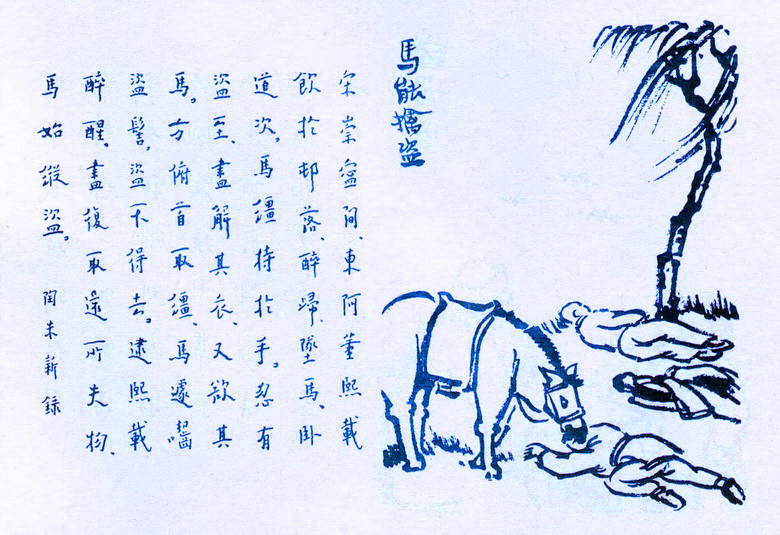 馬能擒盜
宋崇寧間、東阿董熙載
飲於邨落、醉歸、墜馬、臥
道次。馬韁持於手。忽有
盜至、盡解其衣、又欲其
馬。方俯首取韁、馬遽嚙
盜髻。盜不得去。逮熙載
醉醒。盡復取還所失物、
馬始縱盜。 聞未新錄